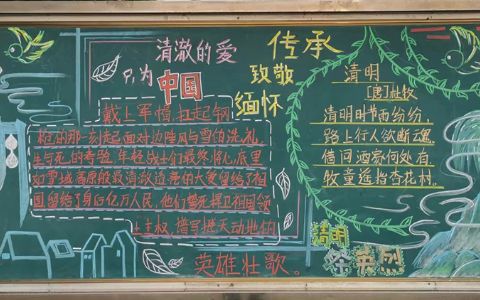 清澈的爱
只为
中国
传承
致敬
缅怀
戴上军帽,扛起钢
枪的那一刻起,面对边陲风与雪的洗礼,
生与死的考验,年轻战士们最终将心底里
如雪域高原般最清澈边亮的大爱留给了祖
国留给了身后亿万人民,他们誓死捍卫祖国领
土主权,谱写撼天动地的
英雄壮歌。
清明
[唐]杜牧
清明时节雨纷纷,
路上行人欲断魂。
借问酒家何处有,
牧童遥指杏花村。
清明
祭英烈